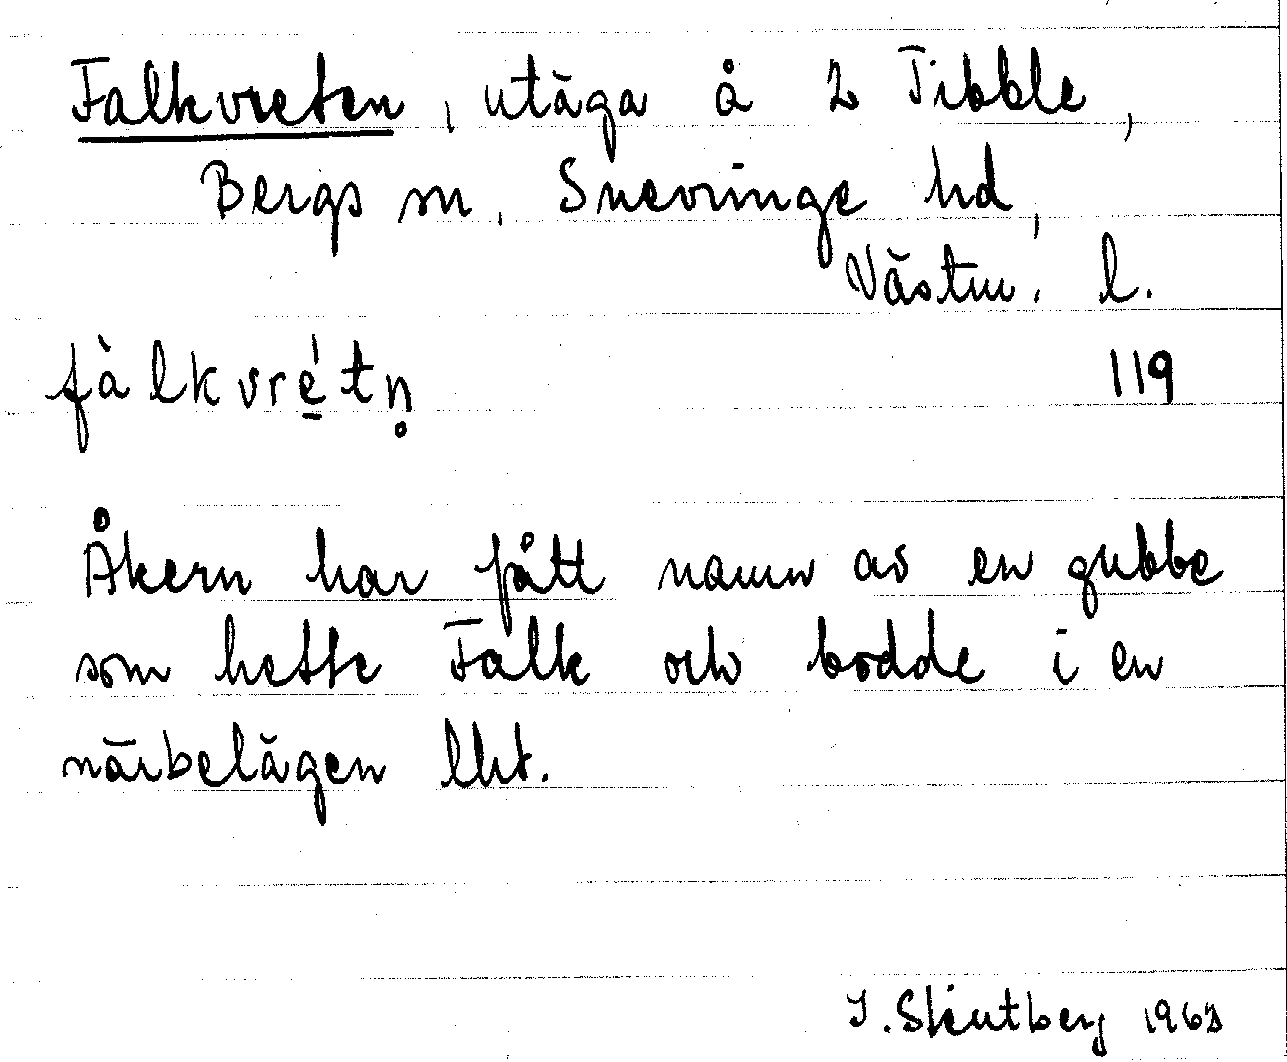 Falkvreten, utäga å 2 Tibble,
Bergs sn, Snevringe hd,
Västm. l.
fàlkvré̲tn̥ 119
Åkern har fått namn av en gubbe
som hette Falk och bodde i en
närbelägen lht.